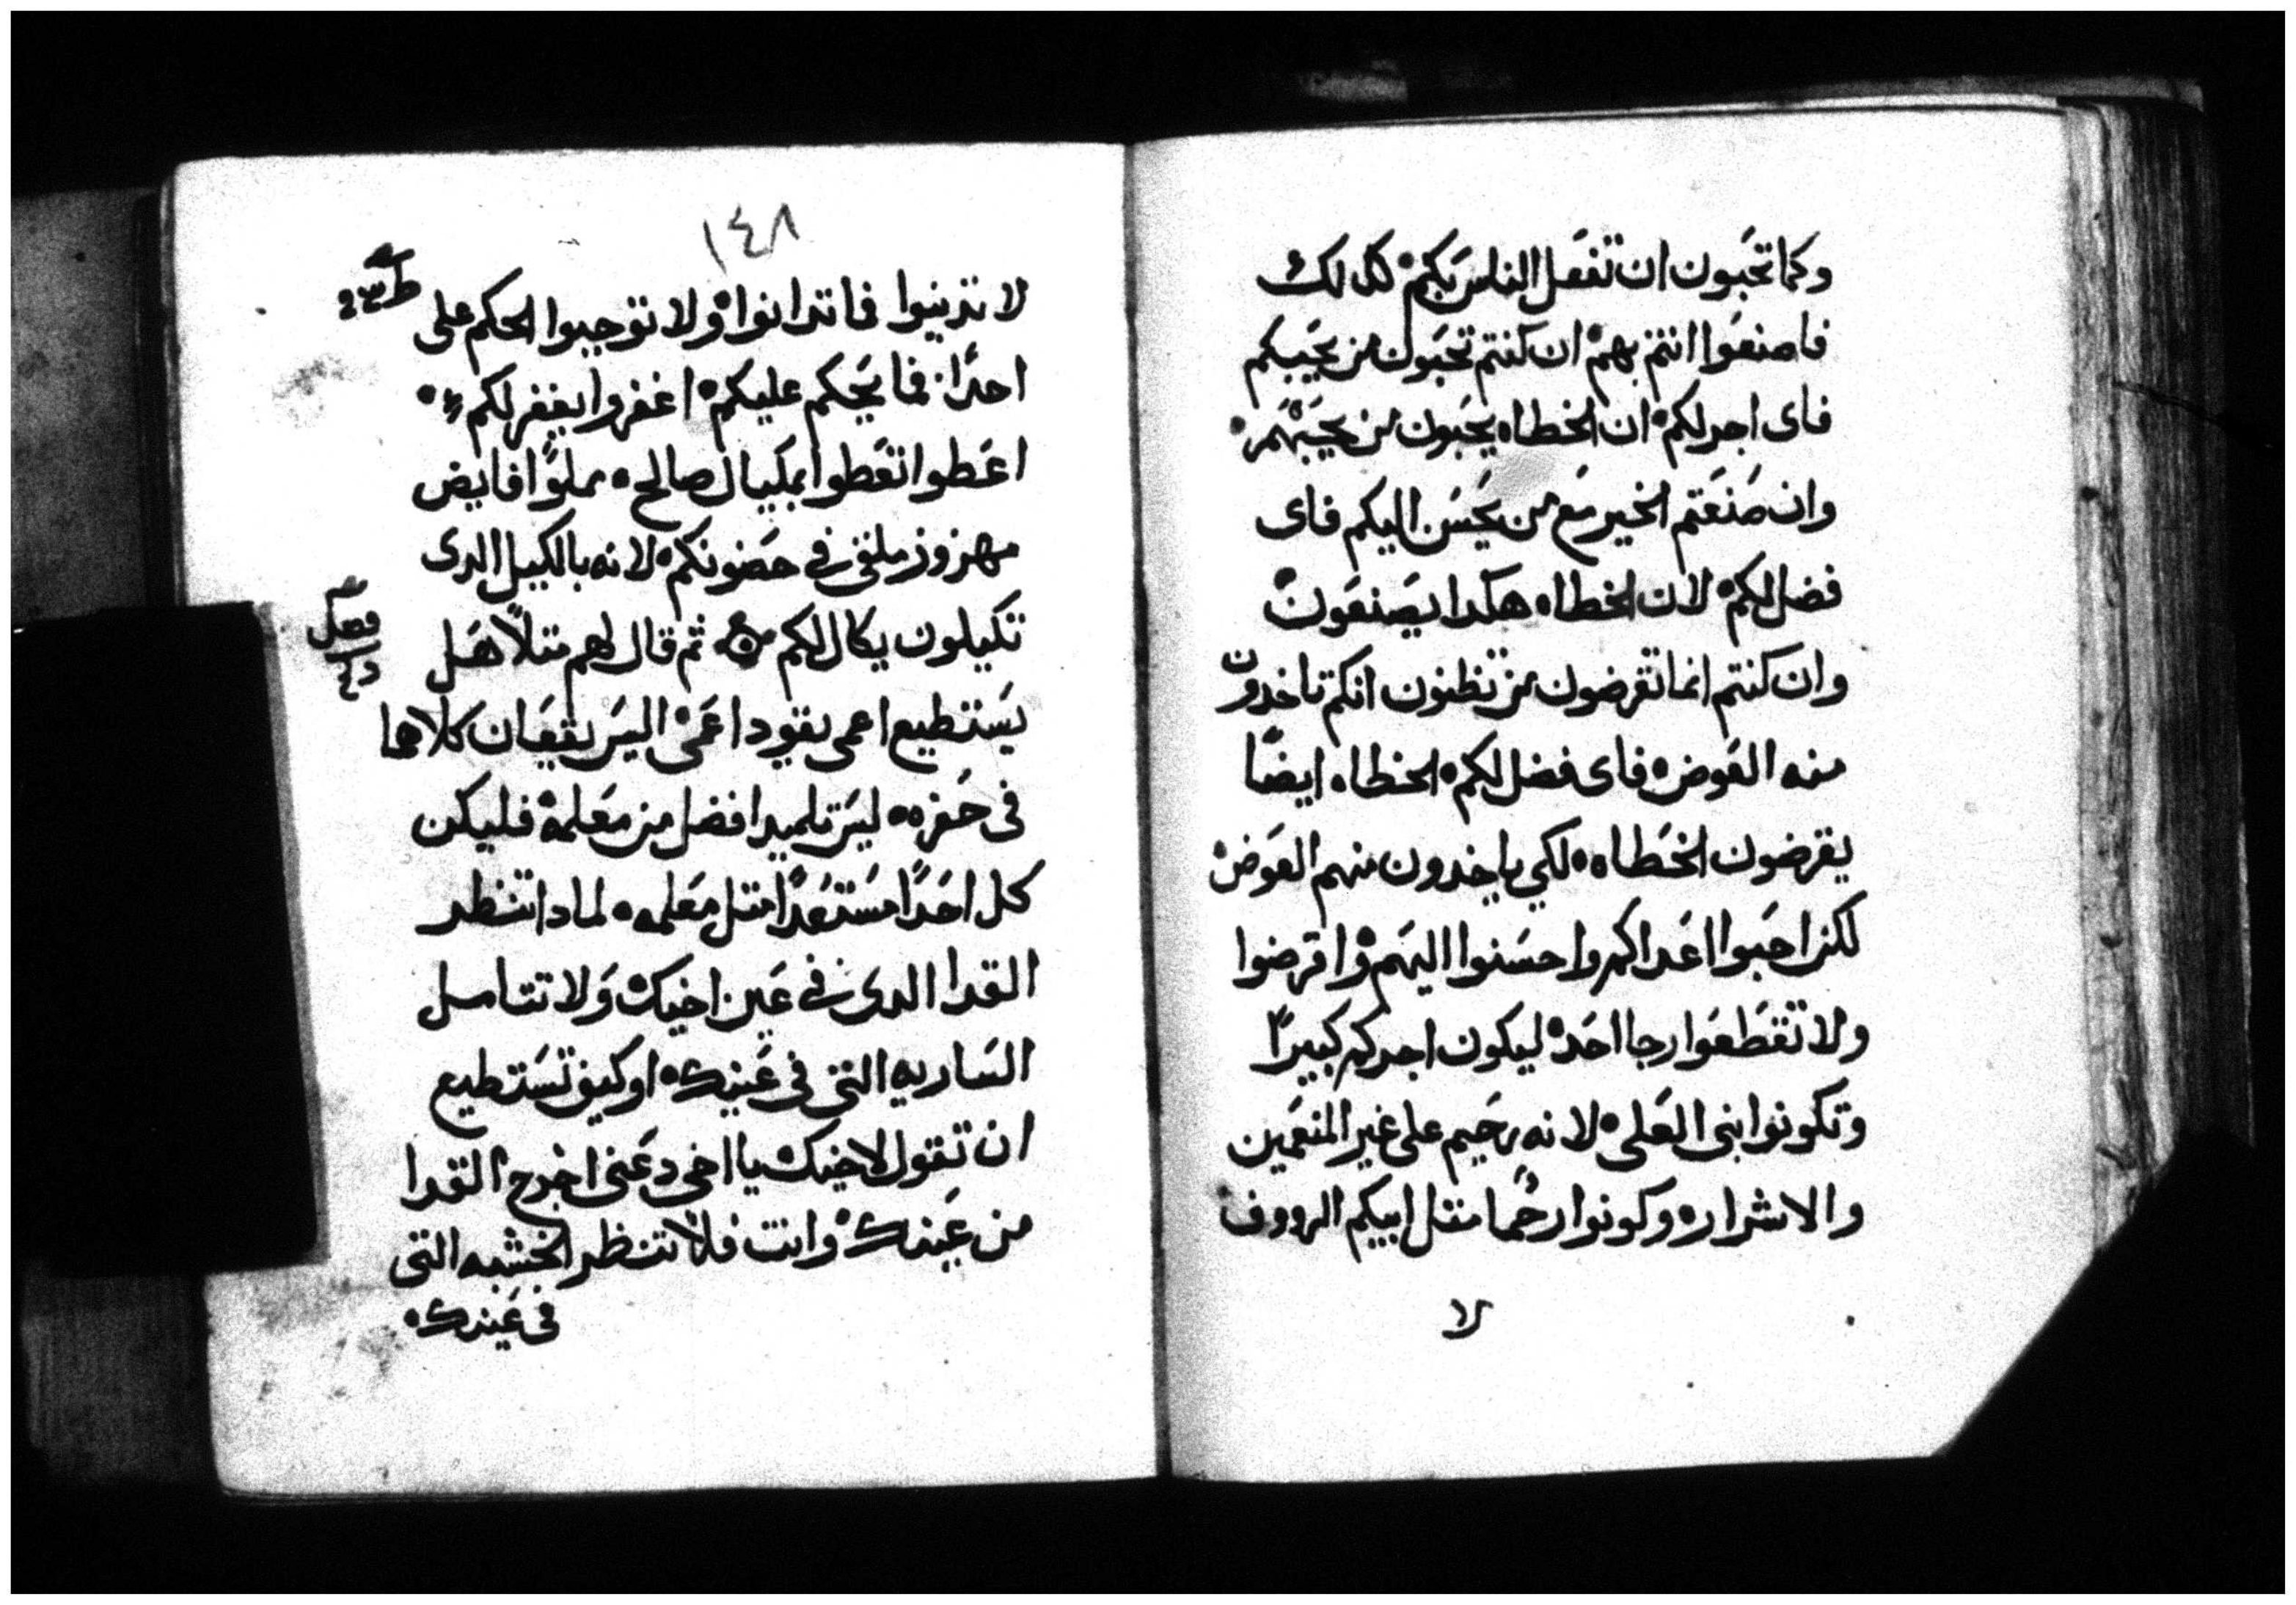 وكما تحبون ان تفعل الناس بكم كدلك
فاصنعوا انتم بهم ان كنتم تحبون من يحبكم
فاى اجر لكم ان الخطاه يحبون من يحبهم
وان صنعتم الخير مع من يحسن اليكم فاى
فضل لكم لان الخطاه هكدا يصنعون
وان كنتم انما تقرضون من تظنون انكم تاخدون
منه العوض فاى فضل لكم الخطاه ايضًا
يقرضون الخطاه لكي ياخدون منهم العوض
لكن احبوا اعداكم واحسنوا اليهم واقرضوا
ولا تقطعوا رجا احد ليكون اجركم كبيرًا
وتكونوا بنى العلى لانه رحيم على غير المنعمين
والاشرار وكونوا رحما متل ابيكم الرووف
لا
١٤٨
لا تدينوا فما تدانوا ولا توجبوا الحكم على
احدًا فما يحكم عليكم اغفروا يغفر لكم
اعطوا تعطوا بمكيال صالح مملوًا فايض
مهزوز ملقى فى حضونكم لانه بالكيل الدى
تكيلون يكال لكم ثم قال لهم متلًا هل
فصل
يستطيع اعمى يقود اعمى اليس يقعان كلاهما
فى حفره ليس تلميد افضل من معلمه فليكن
كل احدًا مستعدًا متل معلمه لمادا تنظر
القدا الدى فى عين اخيك ولا تتامل
الساريه التى فى عينك او كيف تستطيع
ان تقول لاخيك يا اخى دعنى اخرج القدا
من عينك وانت فلا تنظر الخشبه التى
فى عينك